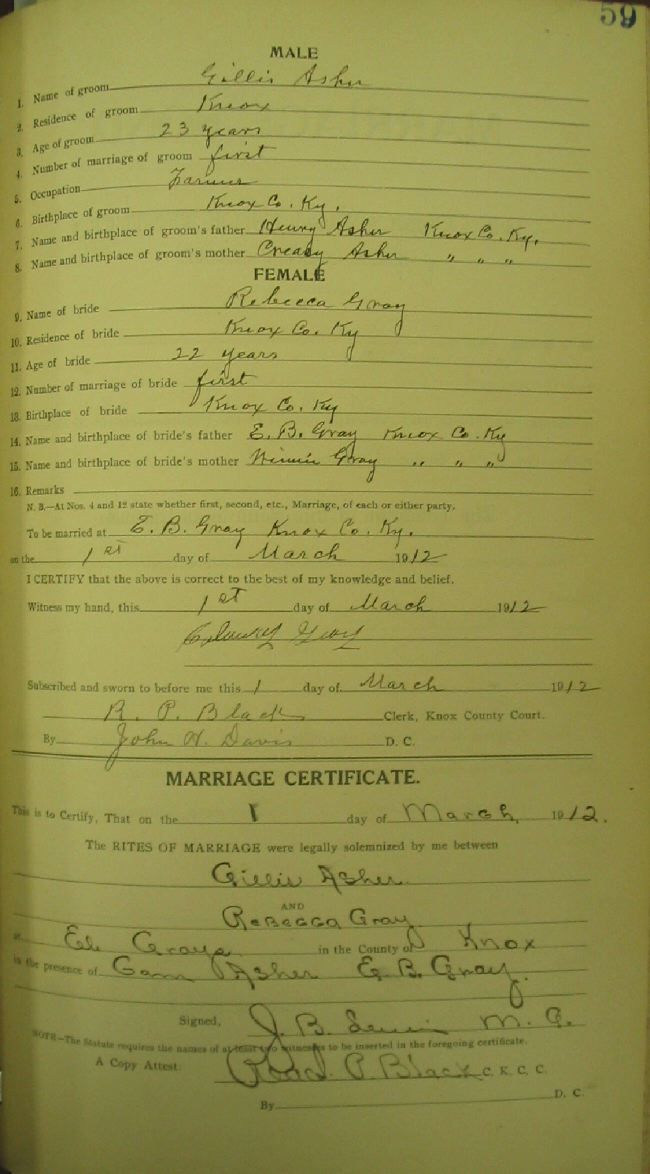 59
MALE
1. Name of groom Gillis Asher
2. Residence of groom Knox
3. Age of groom 23 years
4. Number of marriage of groom first
5. Occupation Farmer
6. Birthplace of groom Knox Co. Ky.
7. Name and birthplace of groom's father Henry Asher Knox Co. Ky.
8. Name and birthplace of groom's mother Creasy Asher " " "
FEMALE
9. Name of bride Rebecca Gray
10. Residence of bride Knox Co. Ky
11. Age of bride 22 years
12. Number of marriage of bride first
13. Birthplace of bride Knox Co. Ky
14. Name and birthplace of bride's father E. B. Gray Knox Co. Ky
15. Name and birthplace of bride's mother Winnie Gray " " "
16. Remarks
N. B.—At Nos. 4 and 12 state whether first, second, etc., Marriage, of each or either party.
To be married at E. B. Gray Knox Co. Ky.
on the 1st day of March 1912
I CERTIFY that the above is correct to the best of my knowledge and belief.
Witness my hand, this 1st day of March 1912
Gray
Subscribed and sworn to before me this 1 day of March 1912
R. P. Black Clerk, Knox County Court.
By John H. Davis D. C.
MARRIAGE CERTIFICATE.
This is to Certify, That on the 1 day of March, 1912.
The RITES OF MARRIAGE were legally solemnized by me between
Gillis Asher
AND
Rebecca Gray
at Eb Grays in the County of Knox
in the presence of Cam Asher E. B. Gray.
Signed, J. B. M. G.
NOTE—The Statute requires the names of at least two witnesses to be inserted in the foregoing certificate.
A Copy Attest. Read P. Black C. K. C. C.
By D. C.